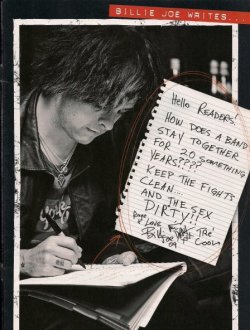 BILLIE JOE WRITES...
Hello READERS!
HOW DOES A BAND
STAY TOGETHER
FOR 20 SOMETHING
YEARS????
KEEP THE FIGHTS
CLEAN...
AND THE SEX
DIRTY!!
Rage & Love
Billie Joe
09